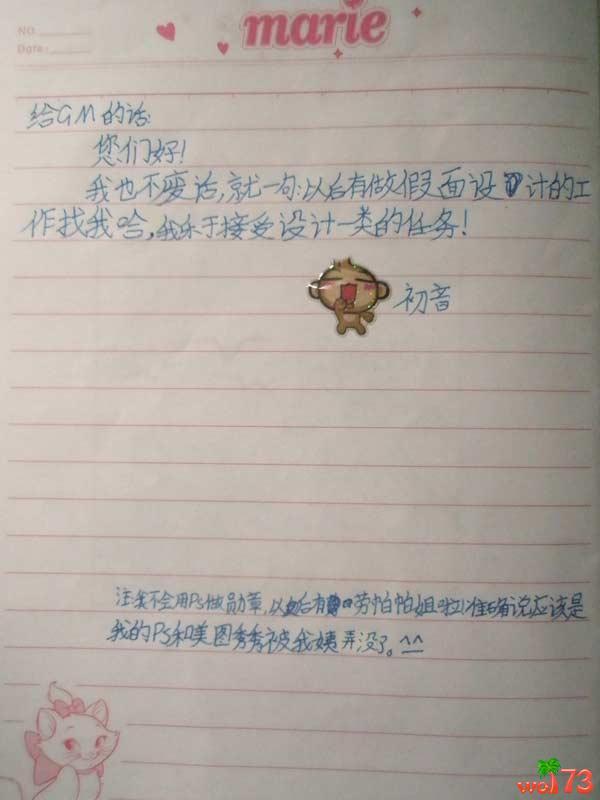 NO.
Date:
marie
给GM的话:
您们好!
我也不废话,就一句:以后有做假面设计的工
作找我哈,我乐于接受设计一类的任务!
初音
注:我不会用Ps做勋章,以后有劳帕帕姐啦!准确说应该是
我的PS和美图秀秀被我姨弄没了。^^
wo173